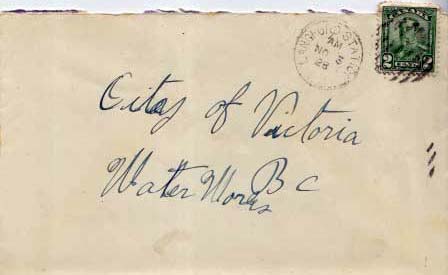 AM
NO 8
28
CANADA
2 CENTS 2
City of Victoria
B C
Water Works